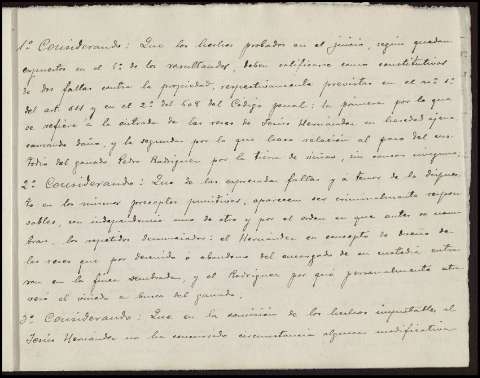 1º Considerando: Que los hechos probados en el juicio, según quedan
expuestos en el 5º de los resultandos, deben calificarse como constitutivos
de dos faltas contra la propiedad, respectivamente previstas en el nº 1º
del art. 611 y en el 2º del 608 del Código penal: la primera por lo que
se refiere á la entrada de las reses de Jesús Hernández en heredad ajena
causando daño, y la segunda por lo que hace relación al paso del cus-
todio del ganado Pedro Rodríguez por la tierra de viñas, sin causar ninguno.
2º Considerando: Que de las expresadas faltas y á tenor de lo dispues-
to en los mismos preceptos punitivos, aparecen ser criminalmente respon-
sables, con independencia uno de otro y por el orden en que antes se nom-
bran, los repetidos denunciados: el Hernández en concepto de dueño de
las reses que por descuido ó abandono del encargado de su custodia entra-
ron en la finca sembrada, y el Rodríguez por que personalmente atra-
vesó el viñedo á busca del ganado.
3º Considerando: Que en la comisión de los hechos imputables al
Jesús Hernández no ha concurrido circunstancia alguna modificativa